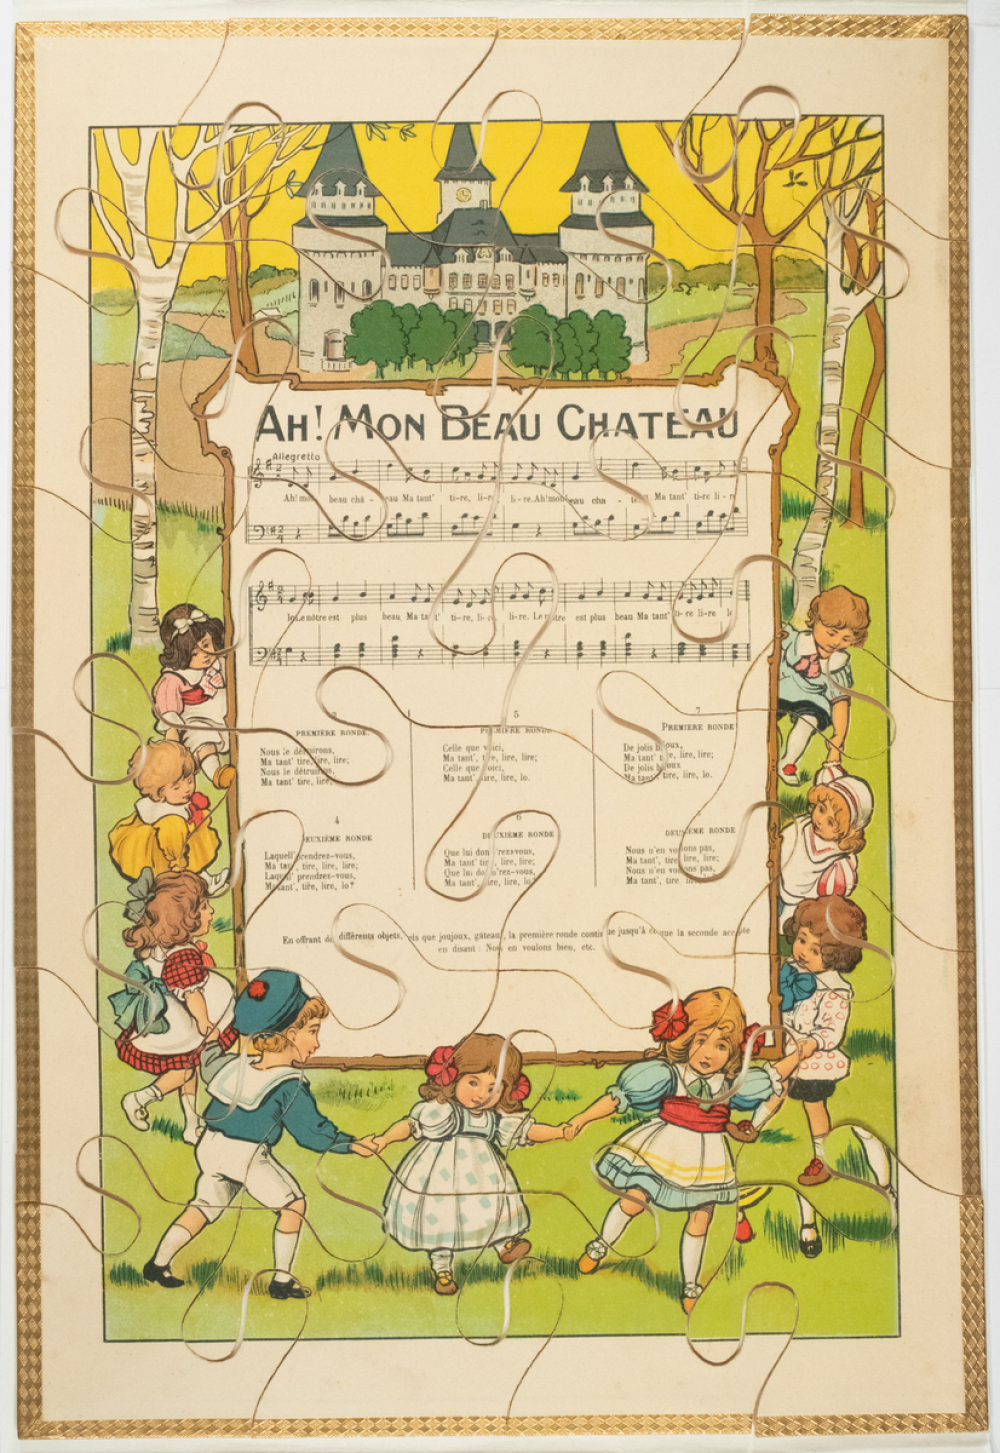 AH! MON BEAU CHATEAU
Allegretto
Ah! mon beau châ - eau Ma tant' ti-re, li-re li-re. Ah! mon beau cha - teau Ma tant' ti-re li-re
lo Le nôtre est plus beau Ma tant' ti-re, li-re li-re. Le nôtre est plus beau Ma tant' ti-re li-re lo
5
7
PREMIÈRE RONDE.
PREMIÈRE RONDE
PREMIÈRE RONDE
Nous le détruirons,
Ma tant' tire, lire, lire;
Nous le détruirons,
Ma tant' tire, lire,
Celle que voici,
Ma tant', tire, lire, lire;
Celle que voici,
Ma tant' tire, lire, lo.
De jolis bijoux,
Ma tant' tire, lire, lire;
De jolis bijoux
Ma tant', tire, lire, lo.
4
6
DEUXIÈME RONDE
DEUXIÈME RONDE
DEUXIÈME RONDE
Laquell' prendrez-vous,
Ma tant', tire, lire, lire;
Laquell' prendrez-vous,
Ma tant', tire, lire, lo?
Que lui donn'rez-vous,
Ma tant' tire, lire, lire;
Que lui donn'rez-vous,
Ma tant', tire, lire, lo?
Nous n'en voulons pas,
Ma tant', tire, lire, lire;
Nous n'en voulons pas,
Ma tant', tire, lire, lo.
En offrant différents objets, tels que joujoux, gâteau, la première ronde continue jusqu'à ce que la seconde accepte
en disant : Nous en voulons bien, etc.